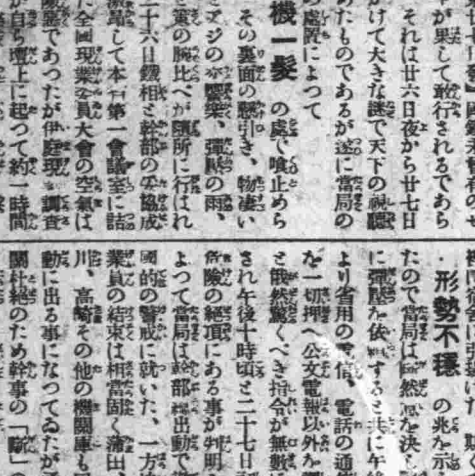 が果して敢行されるであら
それは廿六日夜から廿七日
かけて大きな謎で天下の視聽
めたものであるが遂に當局の
處置によつて
機一髮 の處で喰止めら
その裏面の懸引き、物凄い
マジの 響樂、彈壓の雨、
策の腕比べが隨所に行はれ
二十六日鐵相と幹部の妥協成
激昂して本 第一會議室に詰
た全國現業委員大會の空氣は
險惡であつたが伊庭現 調査
が自ら壇上に起つて約一時間
形勢不穩 の兆を示
たので當局は 然 を決し
に彈壓を依 すると共に午
より省用の電信、電話の通
を一切押へ公文電報以外を
と俄然驚くべき指令が無數
され午後十時頃と二十七日
危險の絕頂にある事が判明
よつて當局は幹部總出動で
國的の警戒に就いた、一方
業員の結束は相當固く蒲出
川、高崎その他の機關庫も
動に出る事になつてゐたが
關杜絕のため幹事の「 」